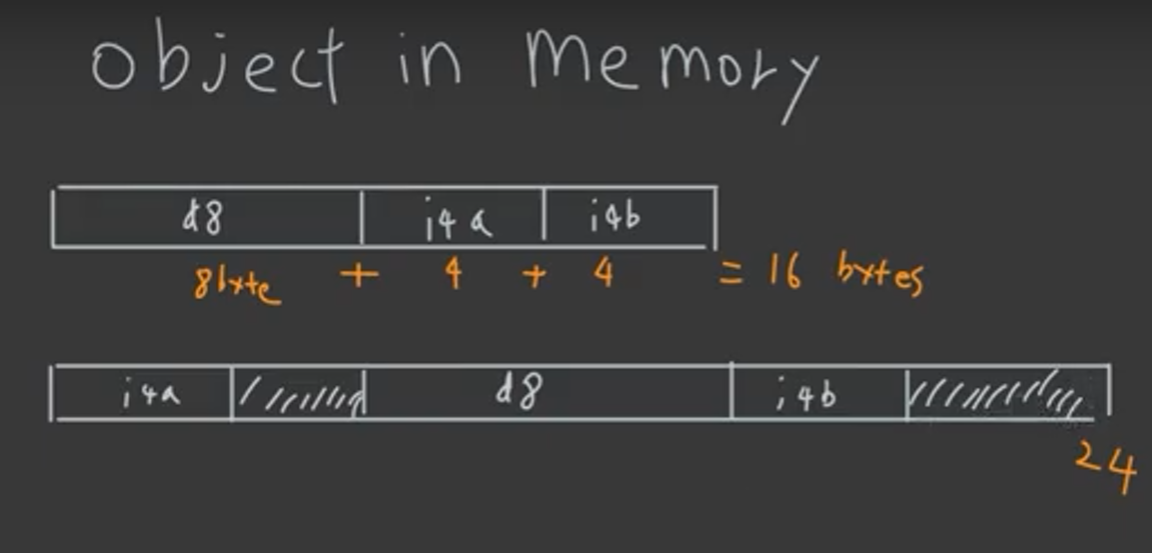 object in memory
d8 i4a i4b
8byte + 4 + 4 = 16 bytes
i4a d8 i4b
24